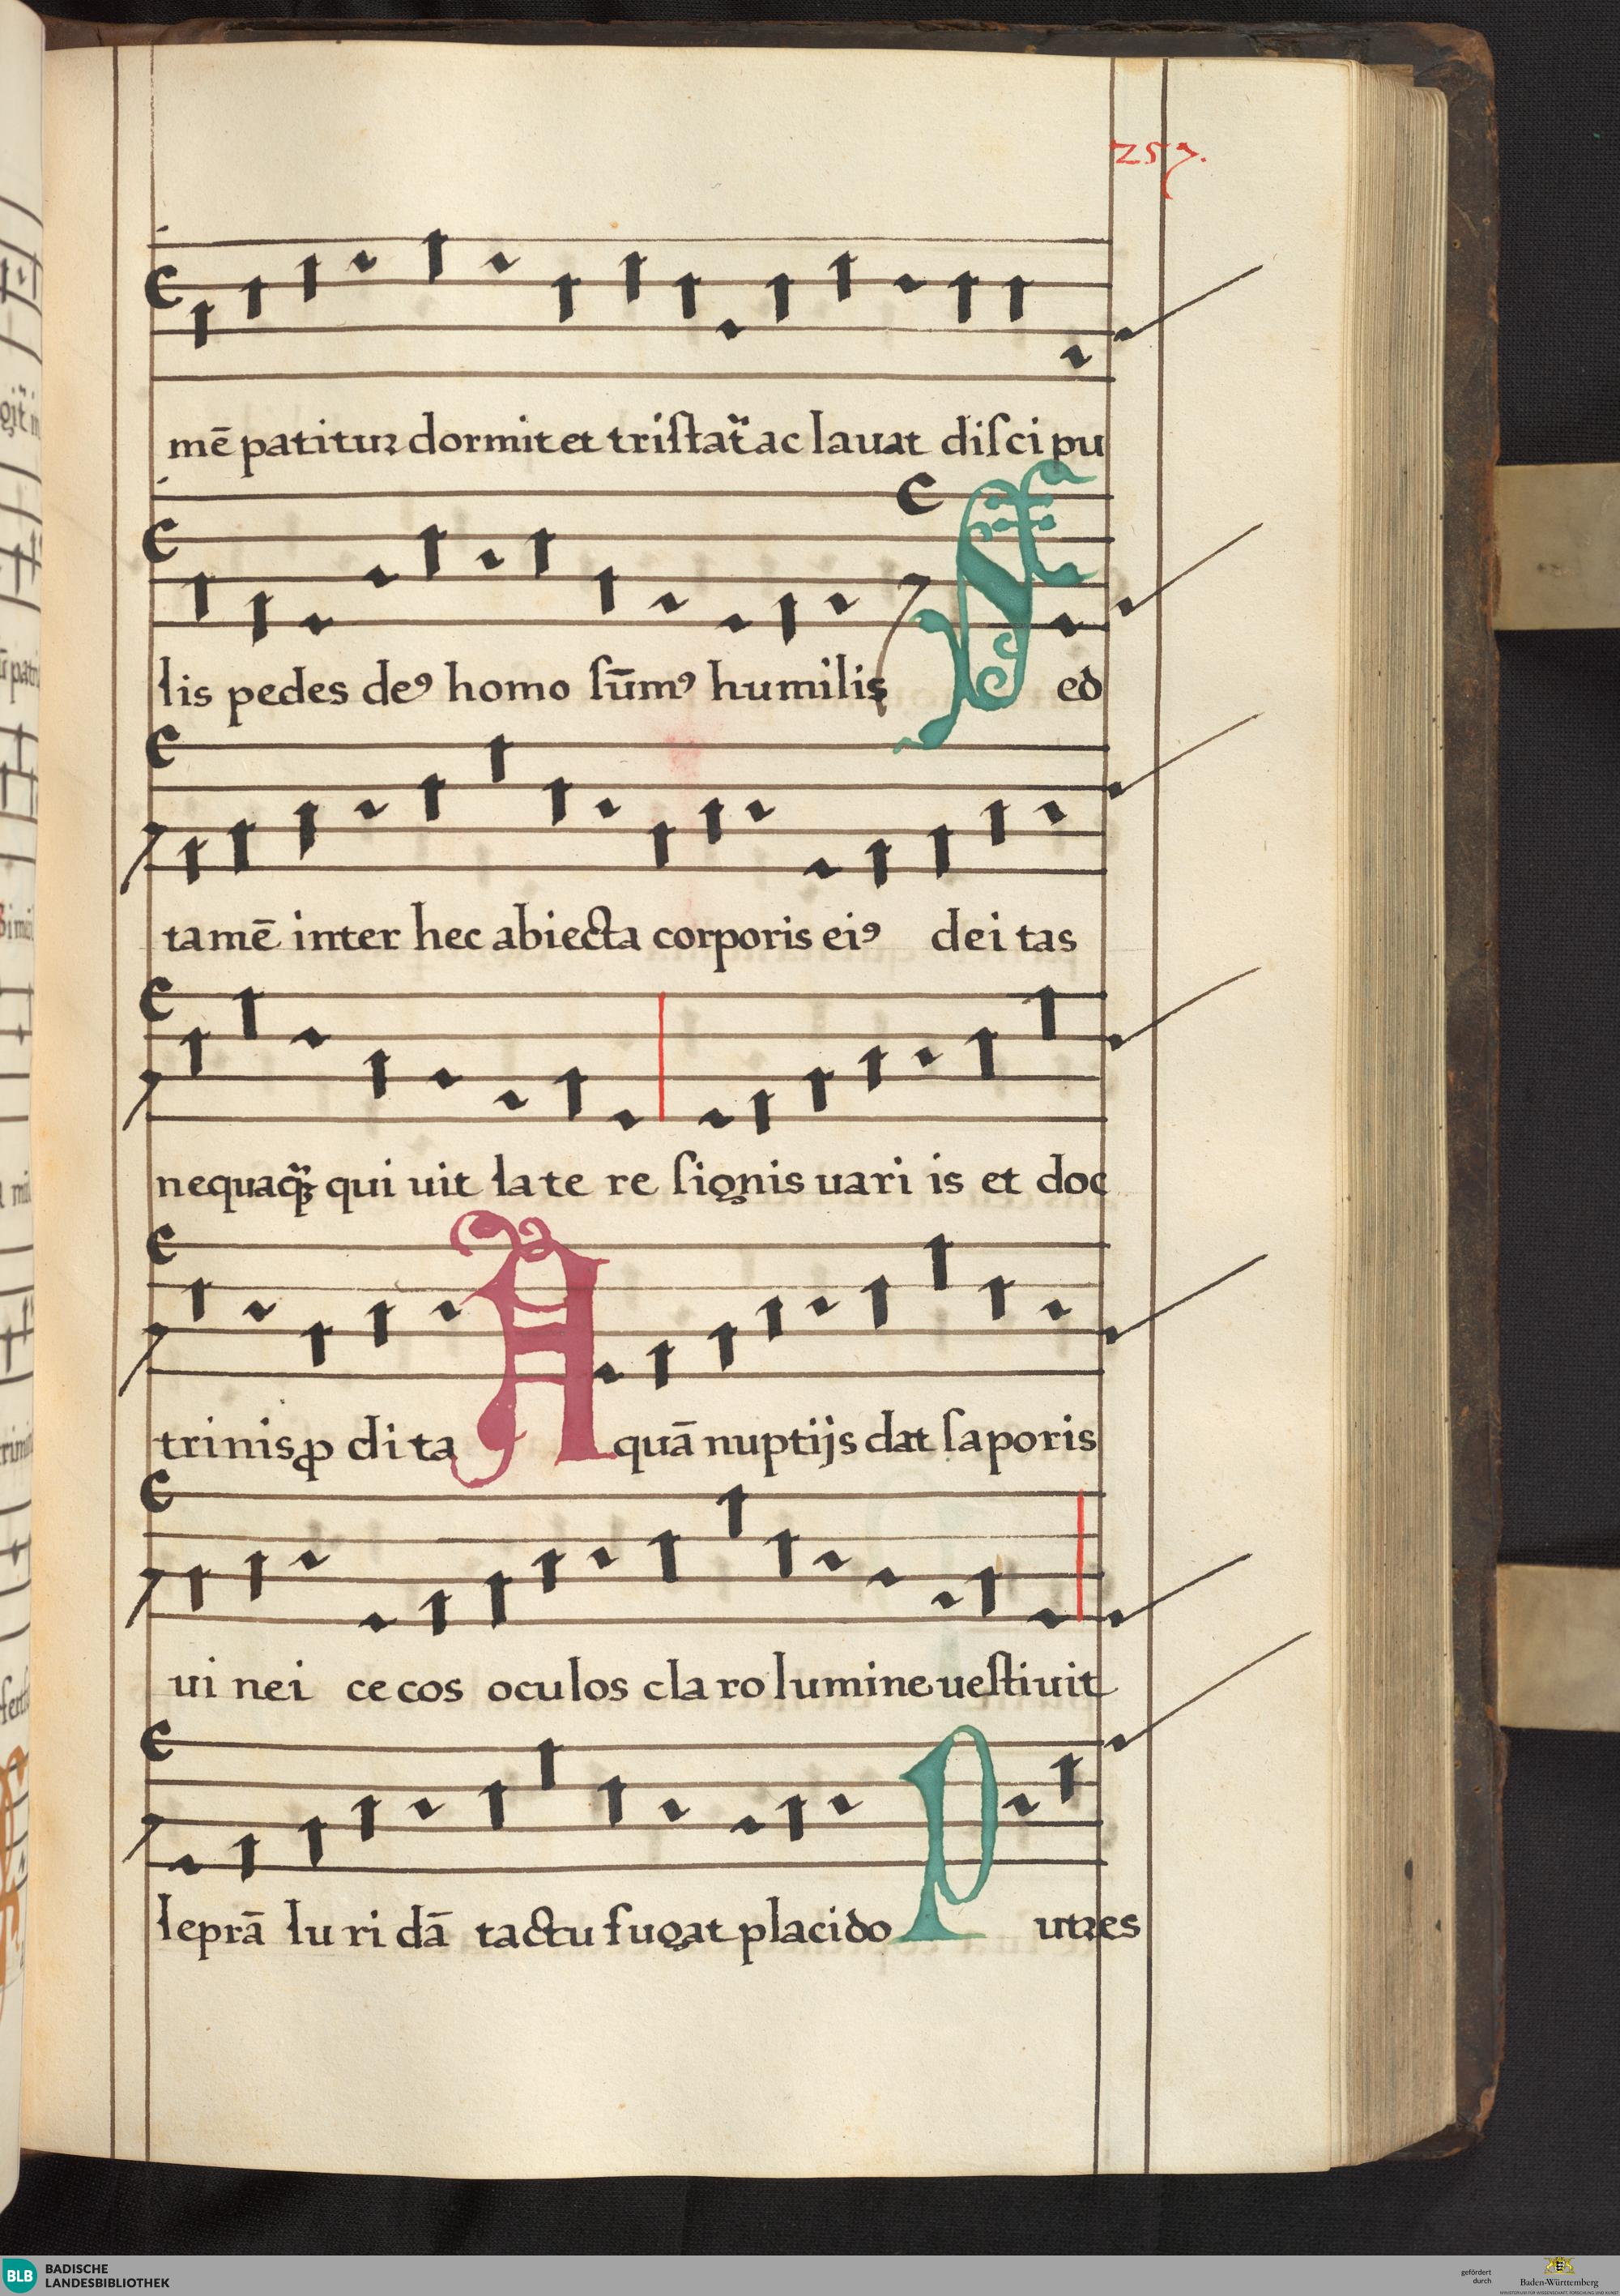 257.
mē patitur dormit et triſtat᷑ ac lauat diſcipu
lis pedes deꝰ homo ſūmꝰ humilis Sed
tamē inter hec abiecta corporis eiꝰ dei tas
nequaꝙ̃ qui uit la te re ſignis uari is et doc
trinis ꝓ di ta A quā nuptijs dat ſaporis
ui nei ce cos oculos cla ro lumine ueſtiuit
leprā lu ri dā tactu fugat placido Putres
BLB BADISCHE
LANDESBIBLIOTHEK
gefördert
durch
Baden-Württemberg